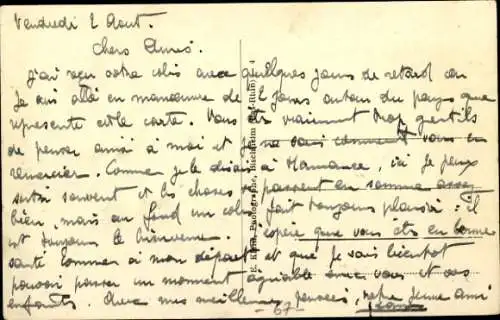 Vendredi 2 Aout.
Chers Amis.
J'ai reçu votre colis avec quelques jours de retard car
Je suis allé en manœuvre de 2 jours autour du pays que
represente cette carte. Vous êtes vraiment trop gentils
de penser ainsi à moi et je ne sais comment vous en
remercier. Comme je le disais à Mamance, ici je peux
sortir souvent et les choses se passent en somme assez
bien, mais au fond un colis fait toujours plaisir : il
est toujours le bienvenue. J'espère que vous êtes en bonne
santé comme à mon départ et que je vais bientôt
pouvoir passer un moment agréable avec vous et vos
enfants. Avec mes meilleures pensées, votre jeune ami
Photographe,
67
4